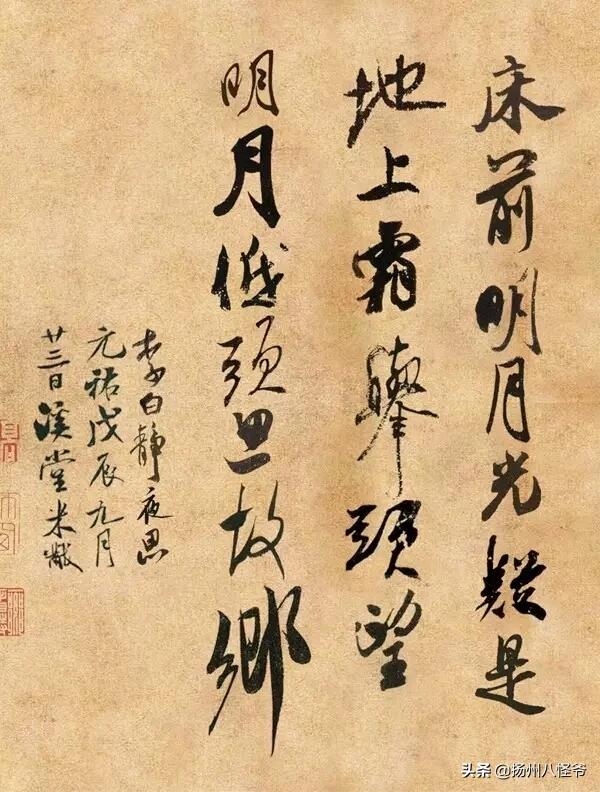 床前明月光疑是
地上霜舉頭望
明月低頭思故鄉
李白靜夜思
元祐戊辰九月
廿三日溪堂米黻
头条@扬州八怪爷